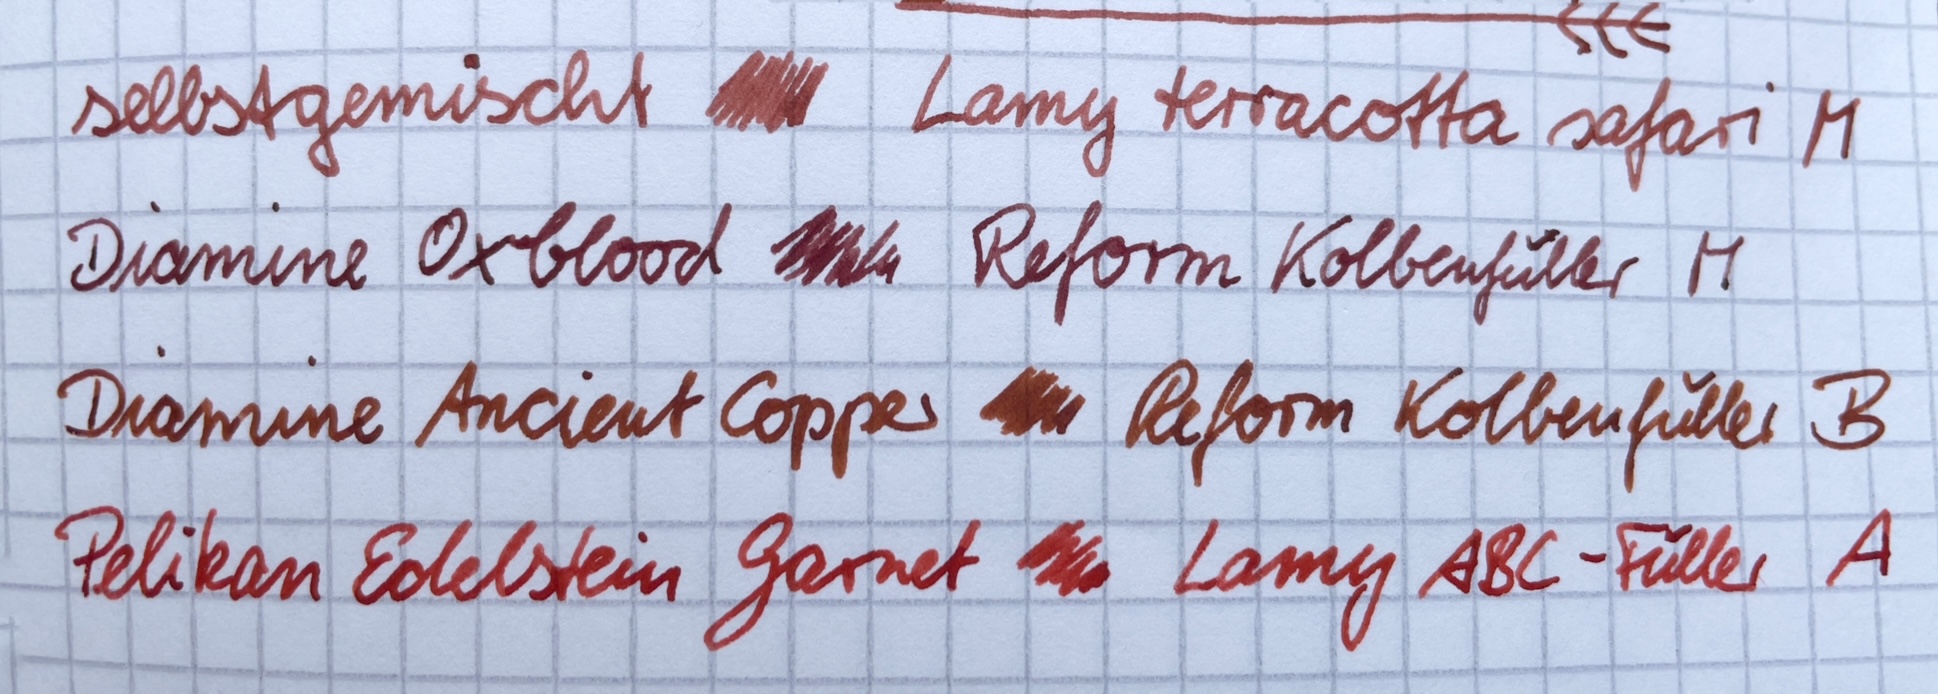 selbstgemischt Lamy terracotta safari M
Diamine Oxblood Reform Kolbenfüller M
Diamine Ancient Copper Reform Kolbenfüller B
Pelikan Edelstein Garnet Lamy ABC-Füller A